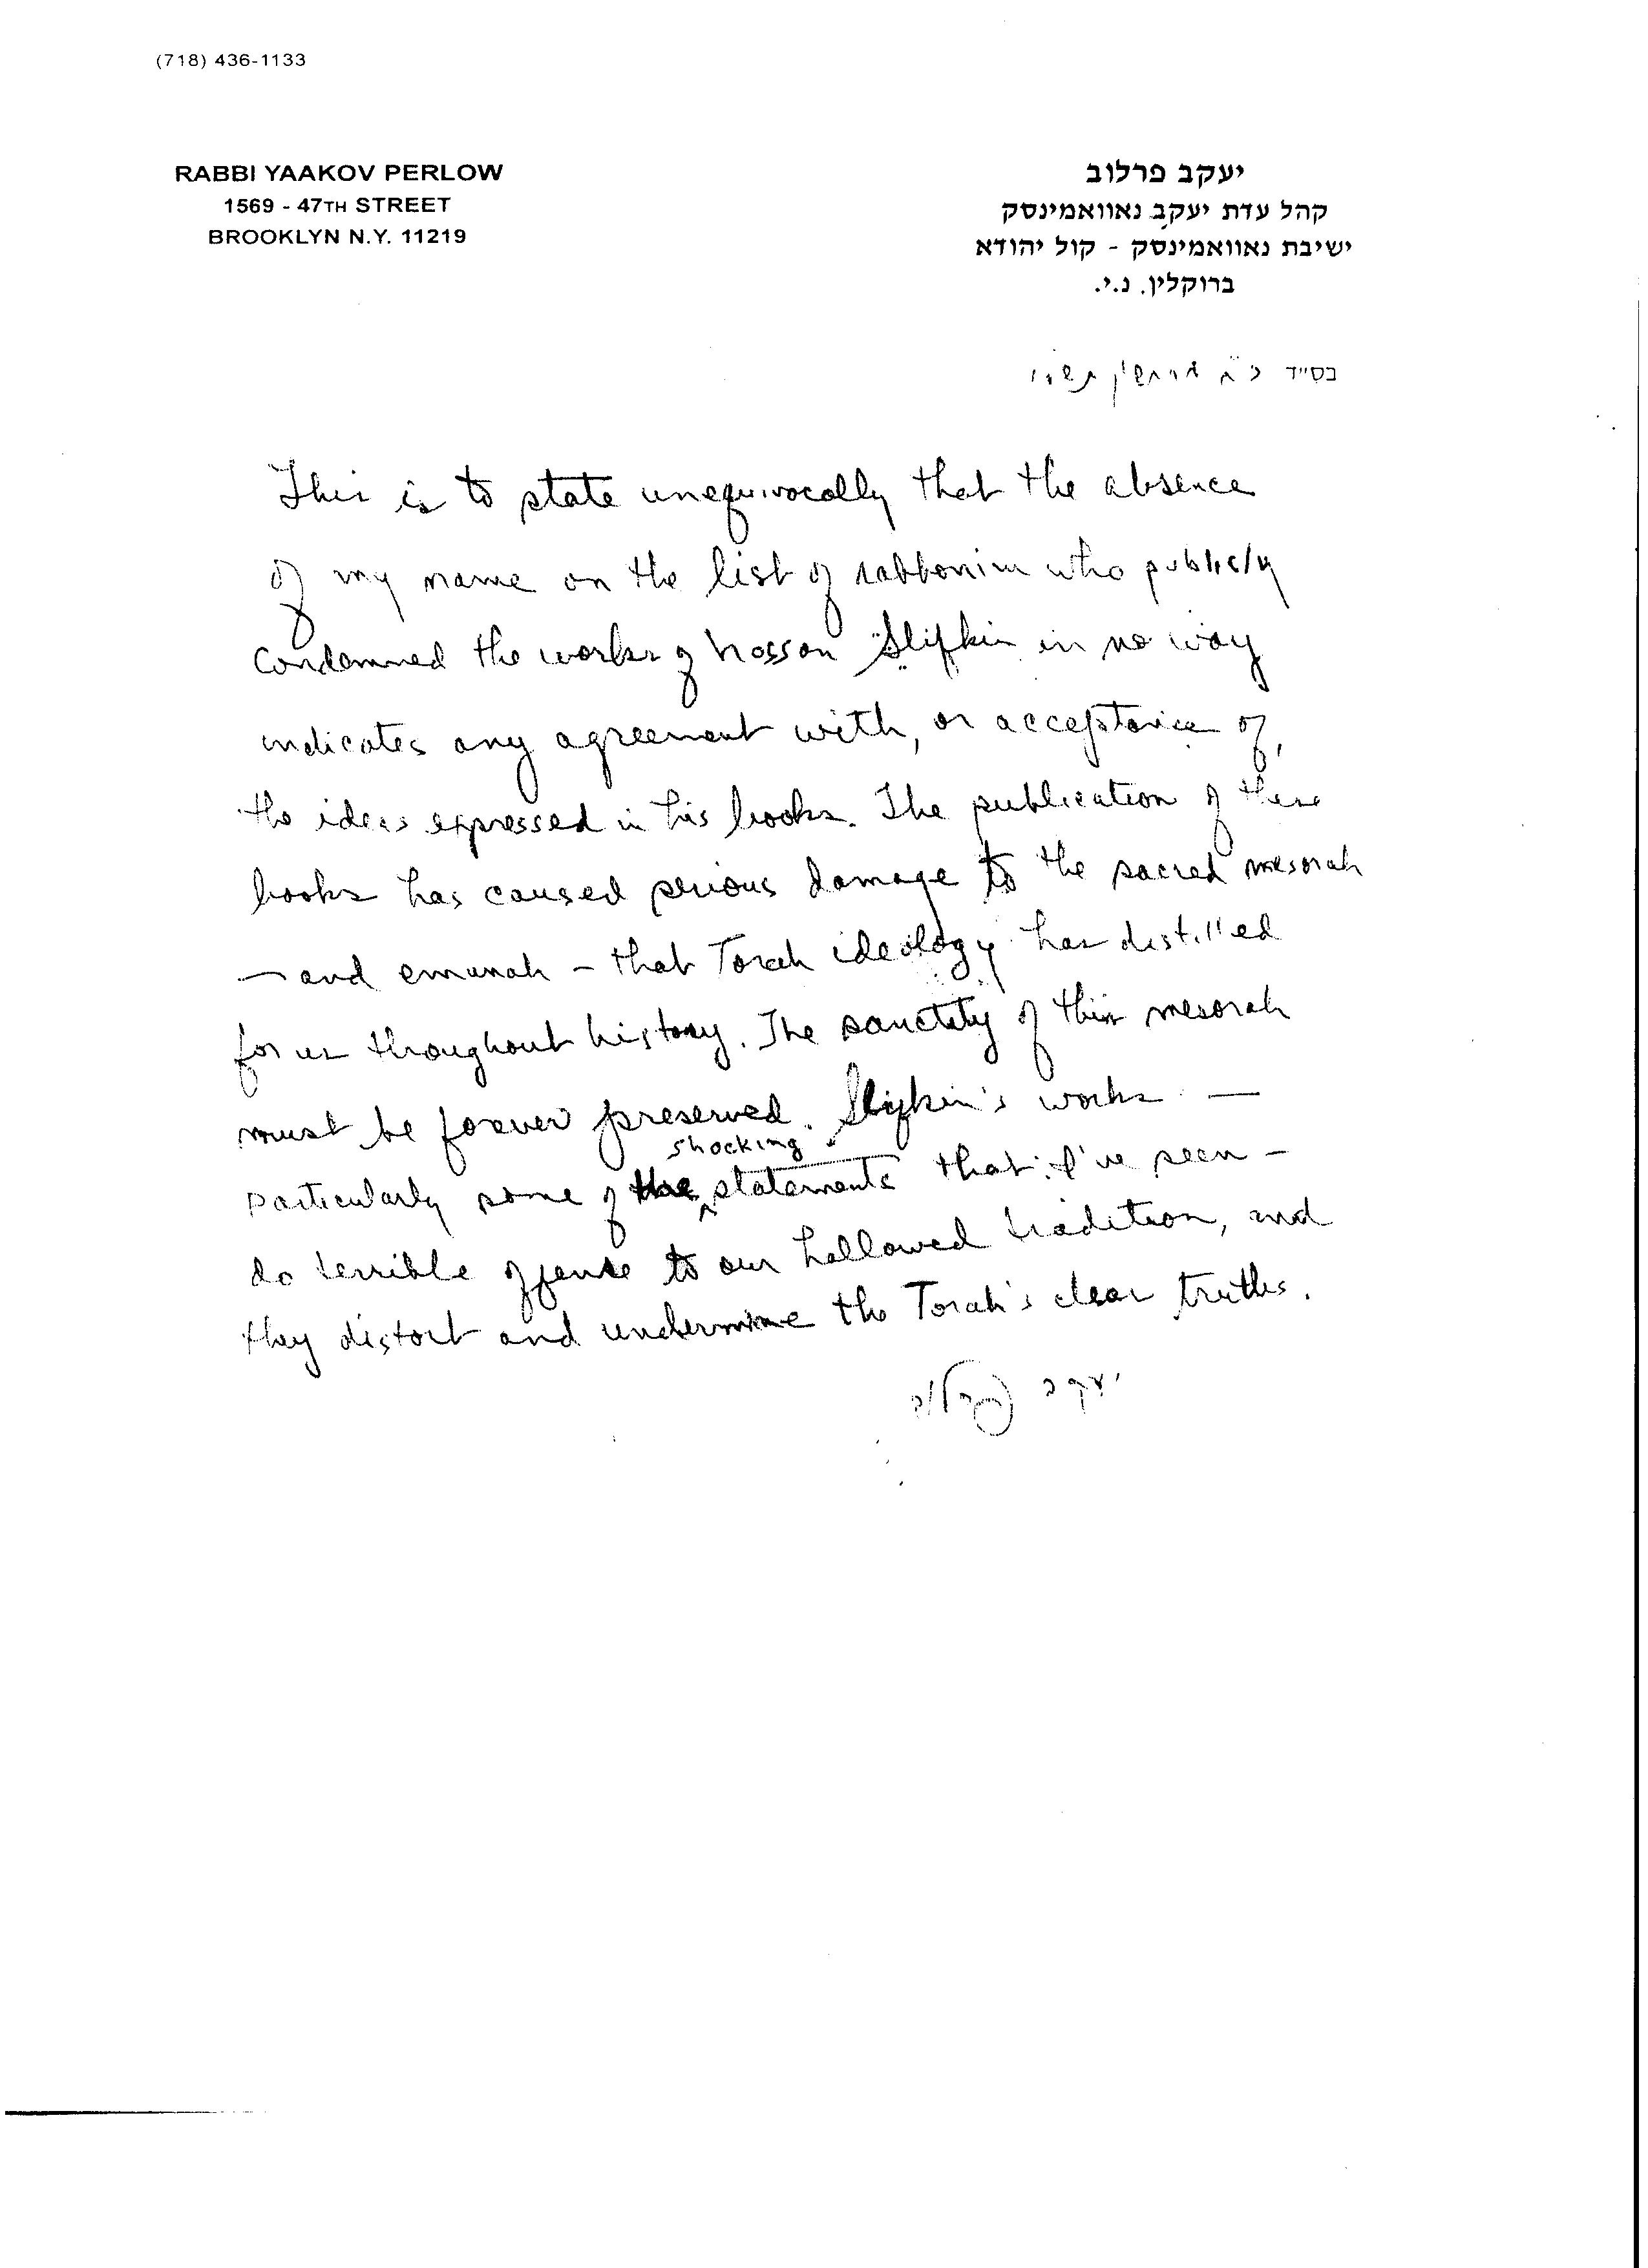 (718) 436-1133
RABBI YAAKOV PERLOW
1569 - 47TH STREET
BROOKLYN N.Y. 11219
יעקב פרלוב
קהל עדת יעקב נאוואמינסק
ישיבת נאוואמינסק - קול יהודא
ברוקלין, נ.י.
בס״ד
This is to state unequivocally that the absence
of my name on the list of rabbonim who publicly
condemned the works of Nosson Slifkin in no way
indicates any agreement with, or acceptance of,
the ideas expressed in his books. The publication of these
books has caused serious damage to the sacred mesorah
— and emunah – that Torah ideology has distilled
for us throughout history. The sanctity of this mesorah
must be forever preserved. Slifkin's works —
particularly some of the shocking statements that I've seen –
do terrible offense to our hallowed tradition, and
they distort and undermine the Torah's clear truths.
יעקב פרלוב